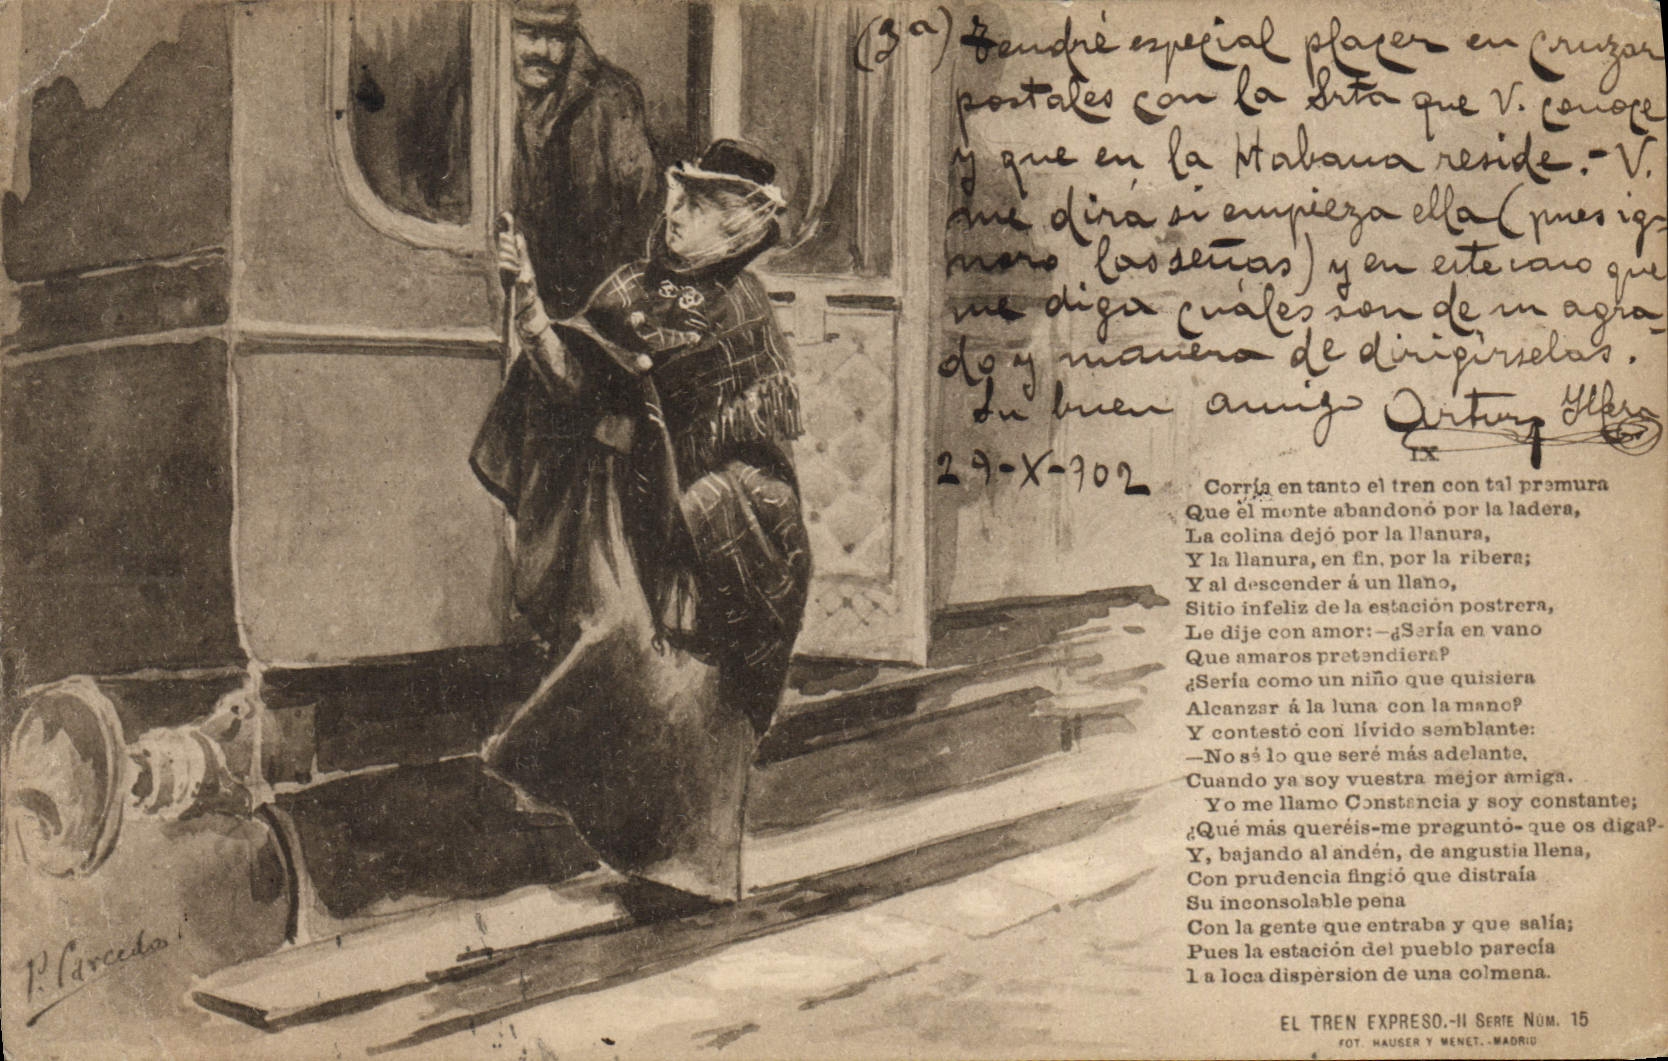 (3ª) Tendré especial placer en cruzar
postales con la Srta que V. conoce
y que en la Habana reside.- V.
me dirá si empieza ella (pues ig-
noro las señas) y en este caso que
me diga cuáles son de su agra-
do y manera de dirigírselas.
Su buen amigo Arturo
29-X-902
IX
Corría en tanto el tren con tal premura
Que el monte abandonó por la ladera,
La colina dejó por la llanura,
Y la llanura, en fin, por la ribera;
Y al descender á un llano,
Sitio infeliz de la estación postrera,
Le dije con amor:—¿Sería en vano
Que amaros pretendiera?
¿Sería como un niño que quisiera
Alcanzar á la luna con la mano?
Y contestó con lívido semblante:
—No sé lo que seré más adelante,
Cuando ya soy vuestra mejor amiga.
Yo me llamo Constancia y soy constante;
¿Qué más queréis-me preguntó-que os diga?-
Y, bajando al andén, de angustia llena,
Con prudencia fingió que distraía
Su inconsolable pena
Con la gente que entraba y que salía;
Pues la estación del pueblo parecía
la loca dispersion de una colmena.
P. Carcedo
EL TREN EXPRESO.-II SERIE NÚM. 15
FOT. HAUSER Y MENET.-MADRID